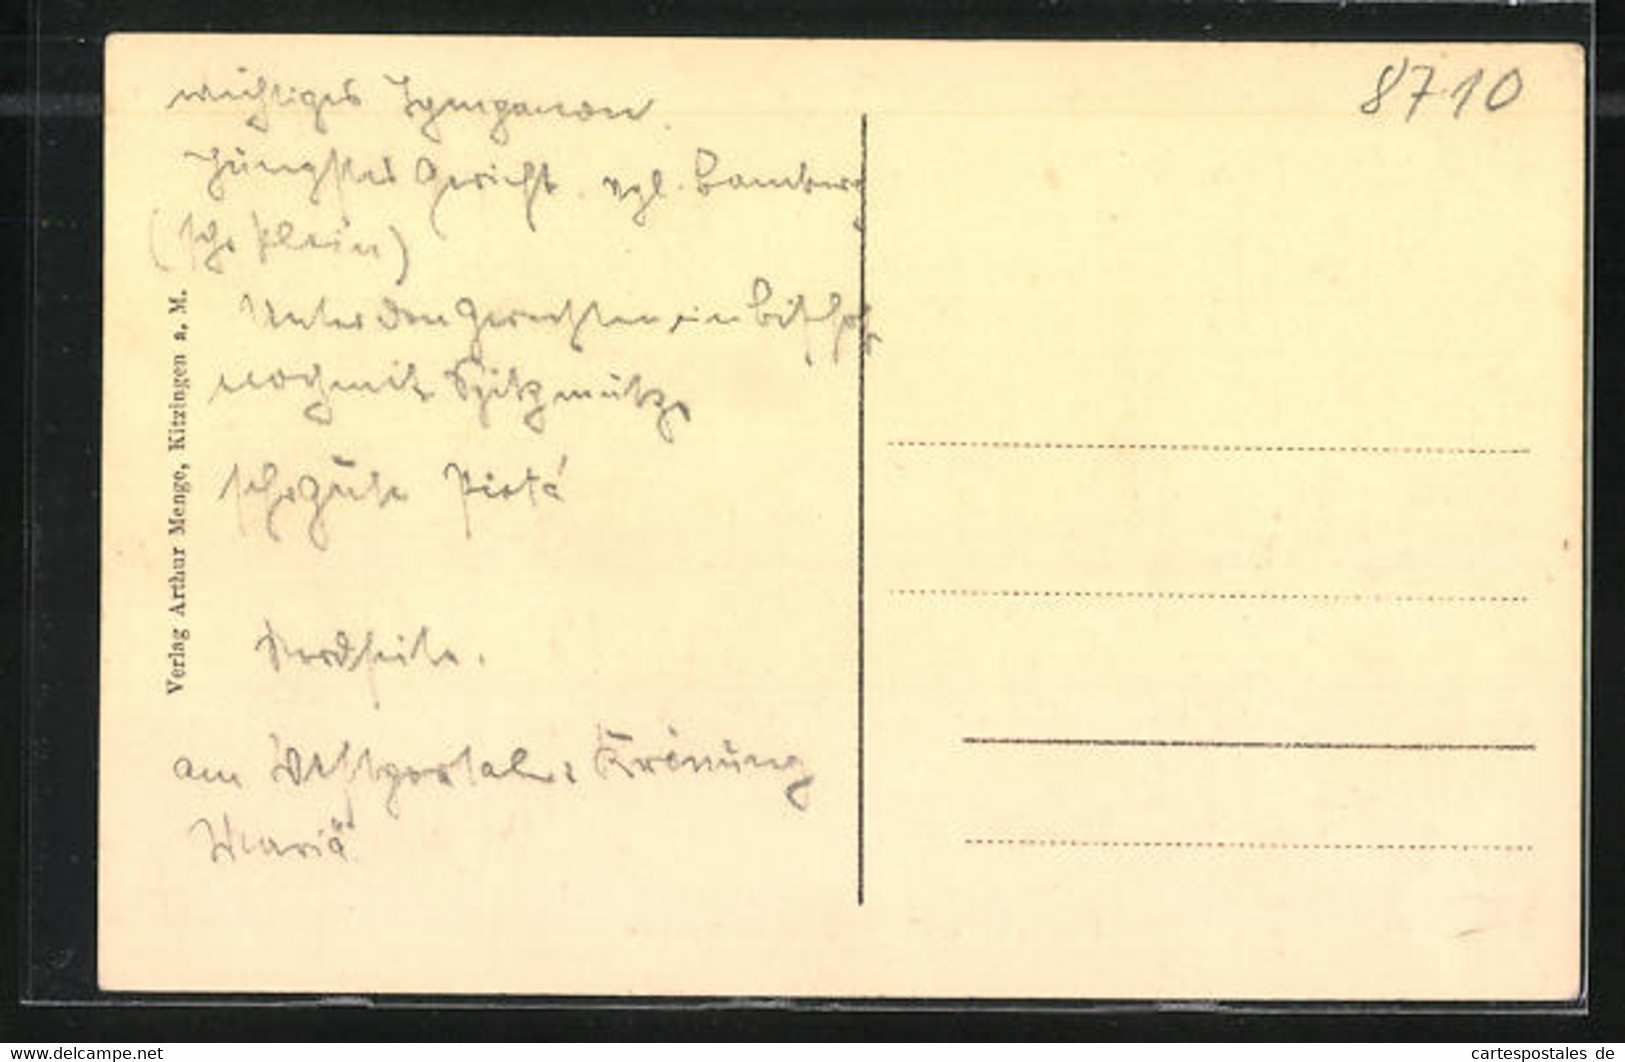 wichtiges Tympanon.
Jüngstes Gericht. vgl. Bamberg
(sehr klein)
Unter den Gerechten ein Bischof
noch mit Spitzmütze
sehr gute Pietá
Nordseite.
am Westportal: Krönung
Mariä
8710
Verlag Arthur Menge, Kitzingen a. M.
www.delcampe.net
cartespostales de